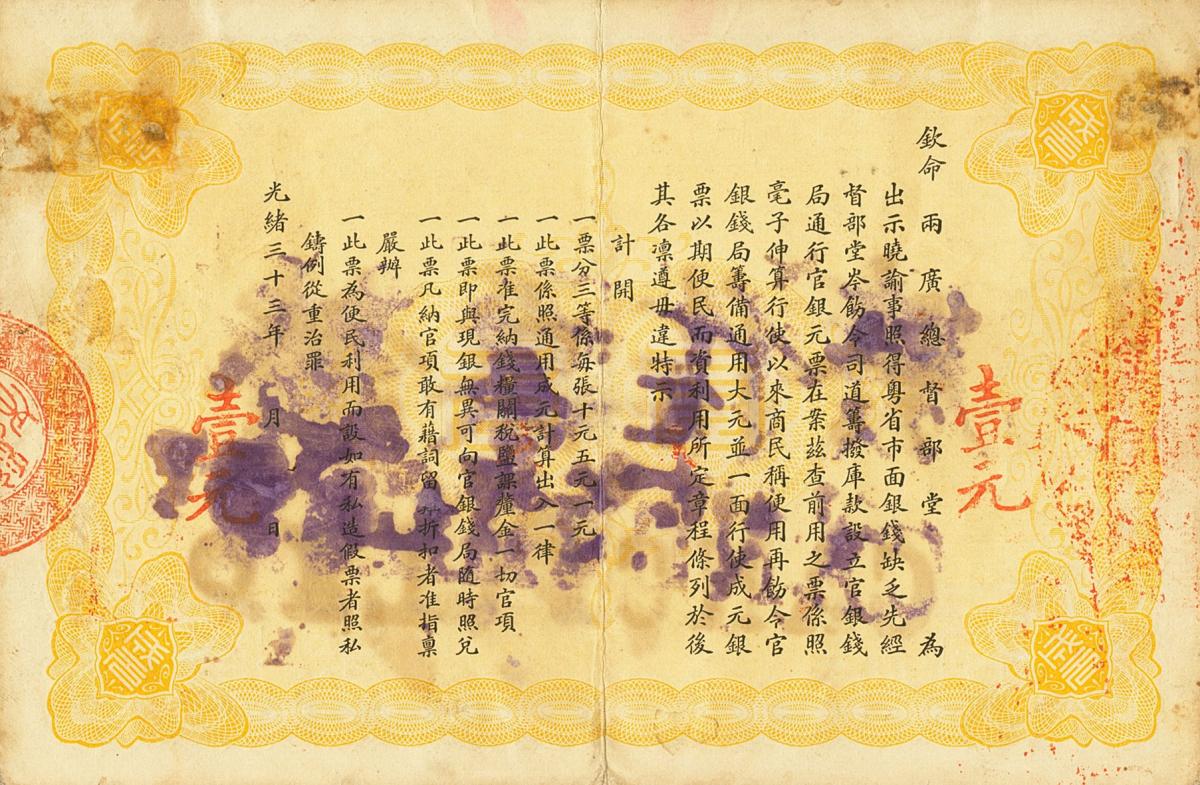 壹元
欽命兩廣總督部堂為
出示曉諭事照得粵省市面銀錢缺乏先經
督部堂岑飭令司道籌撥庫款設立官銀錢
局通行官銀元票在案茲查前用之票係照
毫子伸算行使以來商民稱便用再飭令官
銀錢局籌備通用大元並一面行使成元銀
票以期便民而資利用所定章程條列於後
其各凜遵毋違特示
計開
一票分三等係每張十元五元一元
一此票係照通用成元計算出入一律
一此票准完納錢糧關稅鹽課釐金一切官項
一此票即與現銀無異可向官銀錢局隨時照兌
一此票凡納官項敢有藉詞留折扣者准指稟
嚴辦
一此票為便民利用而設如有私造假票者照私
鑄例從重治罪
光緒三十三年月日
壹元